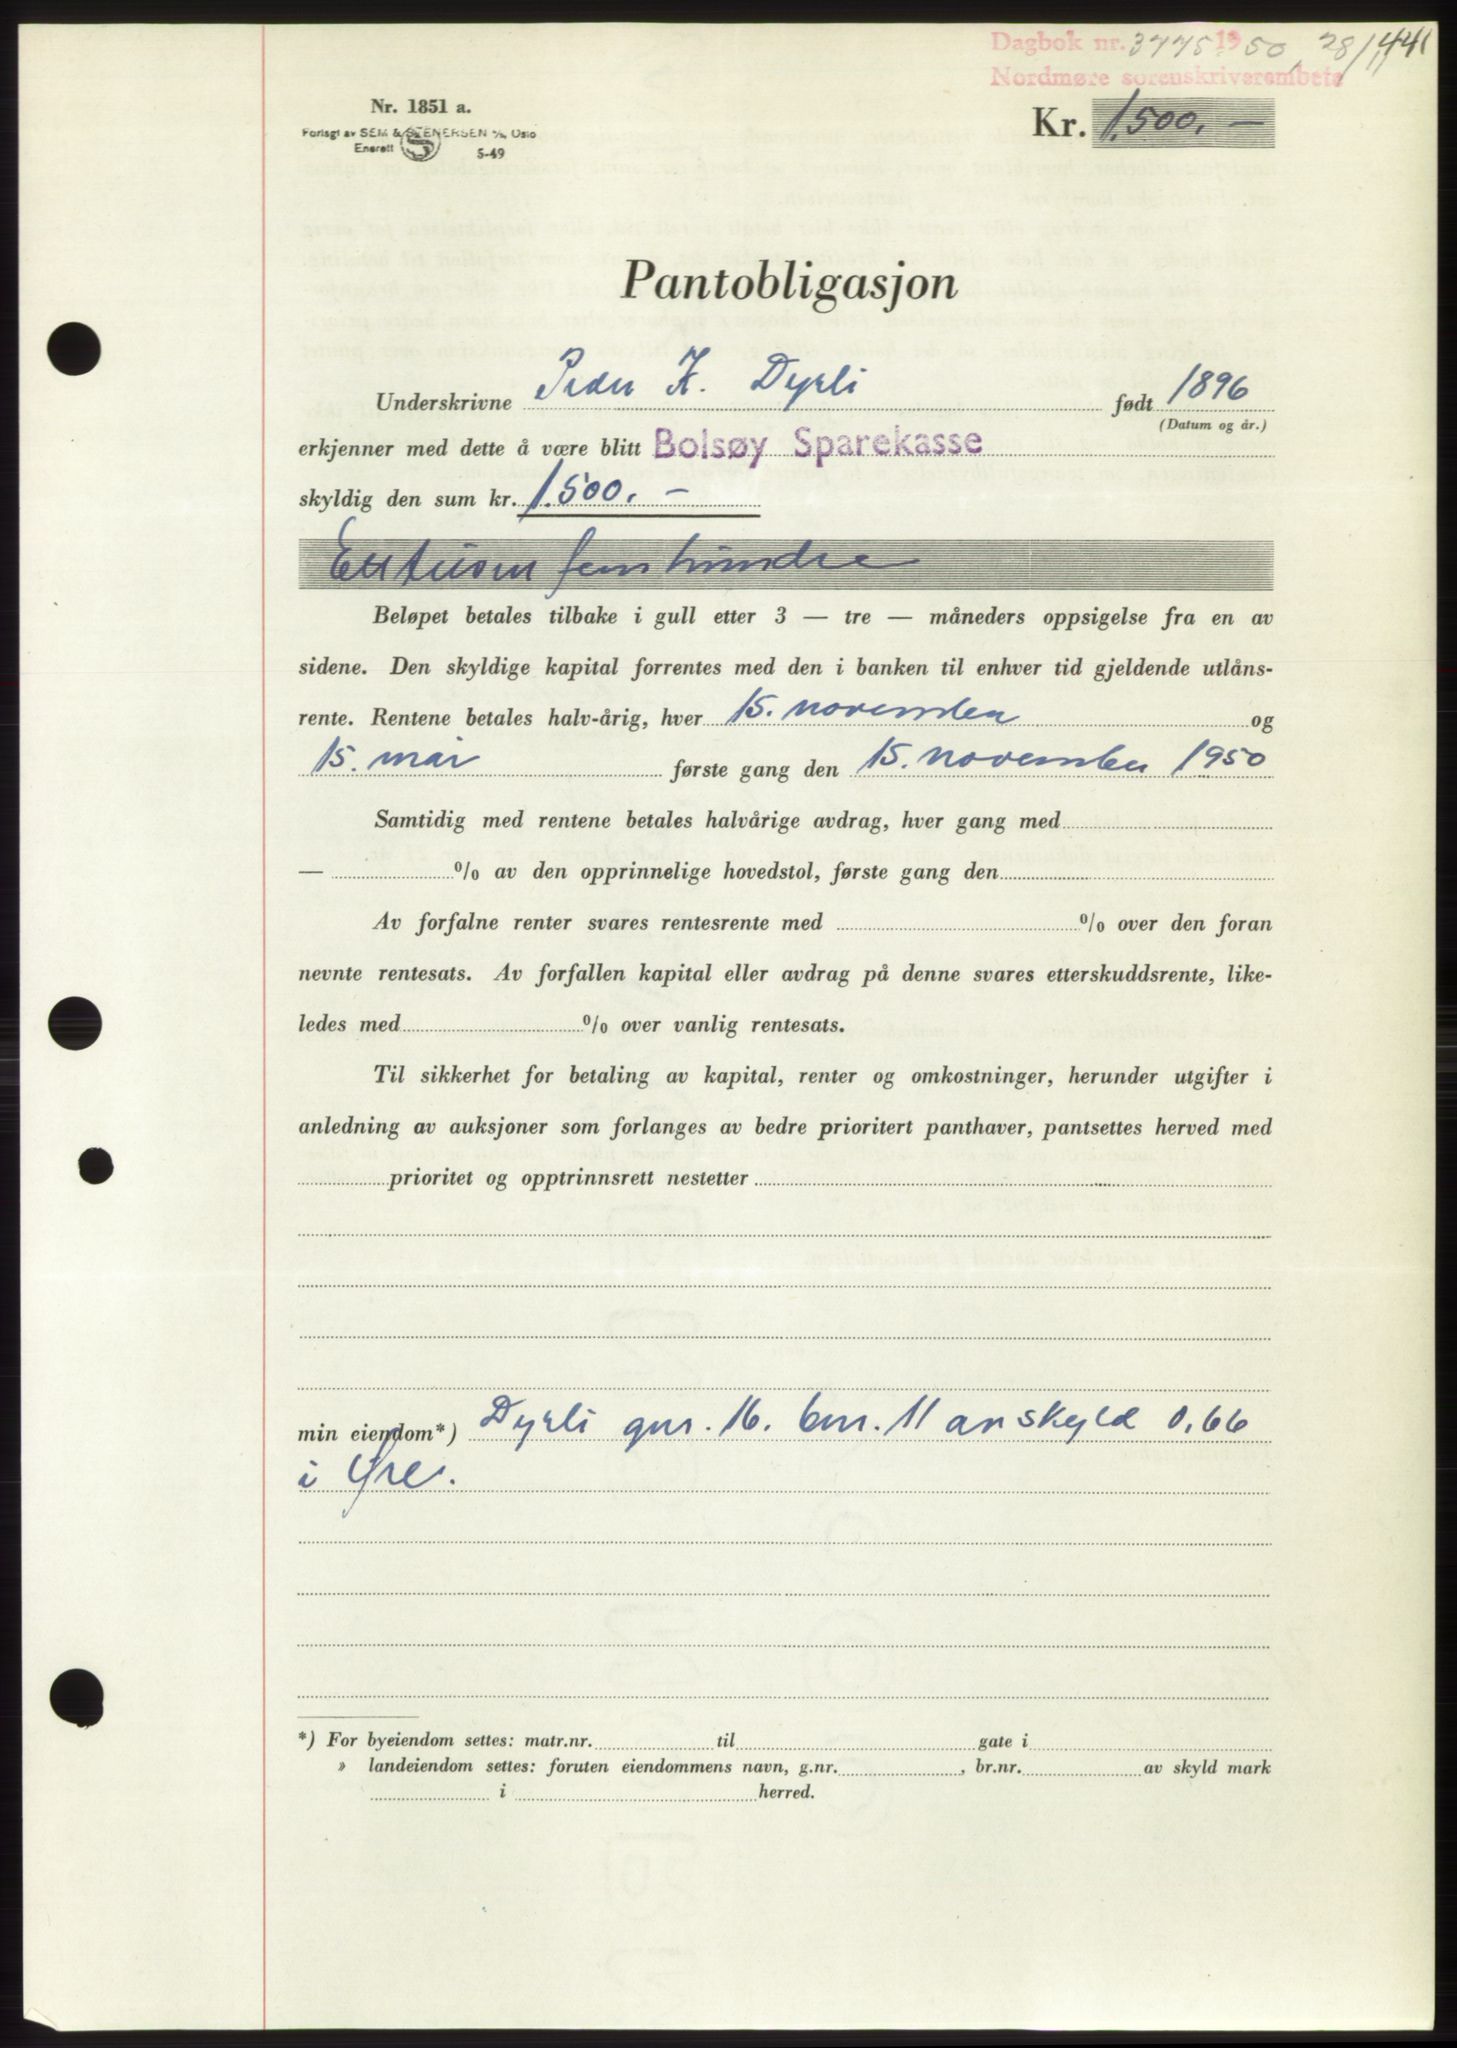 Dagbok nr. 3775 1950 28/11 441
Nordmøre sorenskriverembete
Nr. 1851 a.
Forlagt av SEM & STENERSEN A/S, Oslo
Enerett S 5-49
Kr. 1.500.-
Pantobligasjon
Underskrivne Peder K. Dyrli født 1896
(Datum og år.)
erkjenner med dette å være blitt Bolsøy Sparekasse
skyldig den sum kr. 1.500.-
Ett tusen fem hundre
Beløpet betales tilbake i gull etter 3 — tre — måneders oppsigelse fra en av
sidene. Den skyldige kapital forrentes med den i banken til enhver tid gjeldende utlåns-
rente. Rentene betales halv-årig, hver 15. november og
15. mai første gang den 15. november 1950
Samtidig med rentene betales halvårige avdrag, hver gang med
— % av den opprinnelige hovedstol, første gang den
Av forfalne renter svares rentesrente med % over den foran
nevnte rentesats. Av forfallen kapital eller avdrag på denne svares etterskuddsrente, like-
ledes med % over vanlig rentesats.
Til sikkerhet for betaling av kapital, renter og omkostninger, herunder utgifter i
anledning av auksjoner som forlanges av bedre prioritert panthaver, pantsettes herved med
prioritet og opptrinnsrett nestetter
min eiendom*) Dyrli gnr. 16. bnr. 11 av skyld 0,66
i Øre.
*) For byeiendom settes: matr.nr. til gate i
» landeiendom settes: foruten eiendommens navn, g.nr. , br.nr. av skyld mark
i herred.